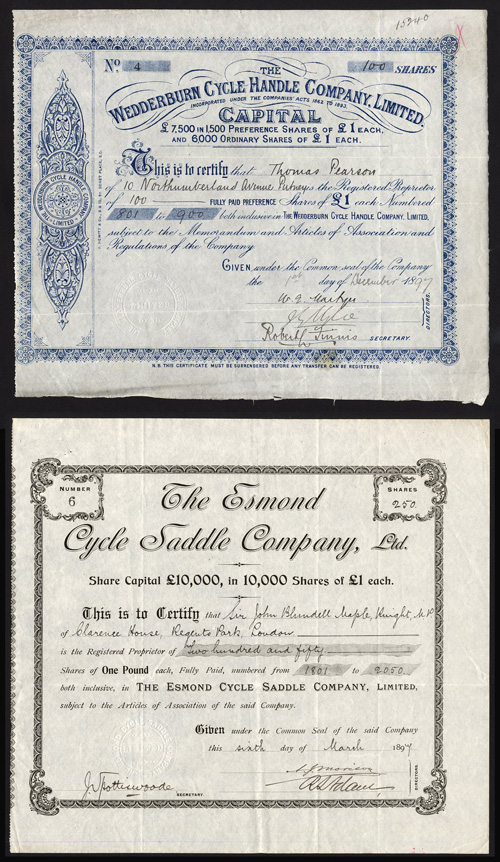 15340
No. 4
100 SHARES
THE
WEDDERBURN CYCLE HANDLE COMPANY, LIMITED.
INCORPORATED UNDER THE COMPANIES' ACTS 1862 TO 1893.
CAPITAL
£7,500 IN 1,500 PREFERENCE SHARES OF £1 EACH,
AND 6,000 ORDINARY SHARES OF £1 EACH.
This is to certify that Thomas Pearson
of 10 Northumberland Avenue Putney is the Registered Proprietor
of 100 FULLY PAID PREFERENCE Shares of £1 each Numbered
801 to 900 both inclusive in THE WEDDERBURN CYCLE HANDLE COMPANY, LIMITED,
subject to the Memorandum and Articles of Association and
Regulations of the Company
GIVEN under the Common seal of the Company
the day of December 1897
DIRECTORS.
SECRETARY.
WEDDERBURN CYCLE HANDLE COMPANY LIMITED.
N.B. THIS CERTIFICATE MUST BE SURRENDERED BEFORE ANY TRANSFER CAN BE REGISTERED.
NUMBER
6
SHARES
250
The Esmond
Cycle Saddle Company, Ltd.
Share Capital £10,000, in 10,000 Shares of £1 each.
This is to Certify that Sir John Blundell Maple, Knight, M.P.
of Clarence House, Regents Park, London
is the Registered Proprietor of Two hundred and fifty
Shares of One Pound each, Fully Paid, numbered from 1801 to 2050
both inclusive, in THE ESMOND CYCLE SADDLE COMPANY, LIMITED,
subject to the Articles of Association of the said Company.
Given under the Common Seal of the said Company
this sixth day of March 1897
J. Spottiswoode
SECRETARY.
DIRECTORS.